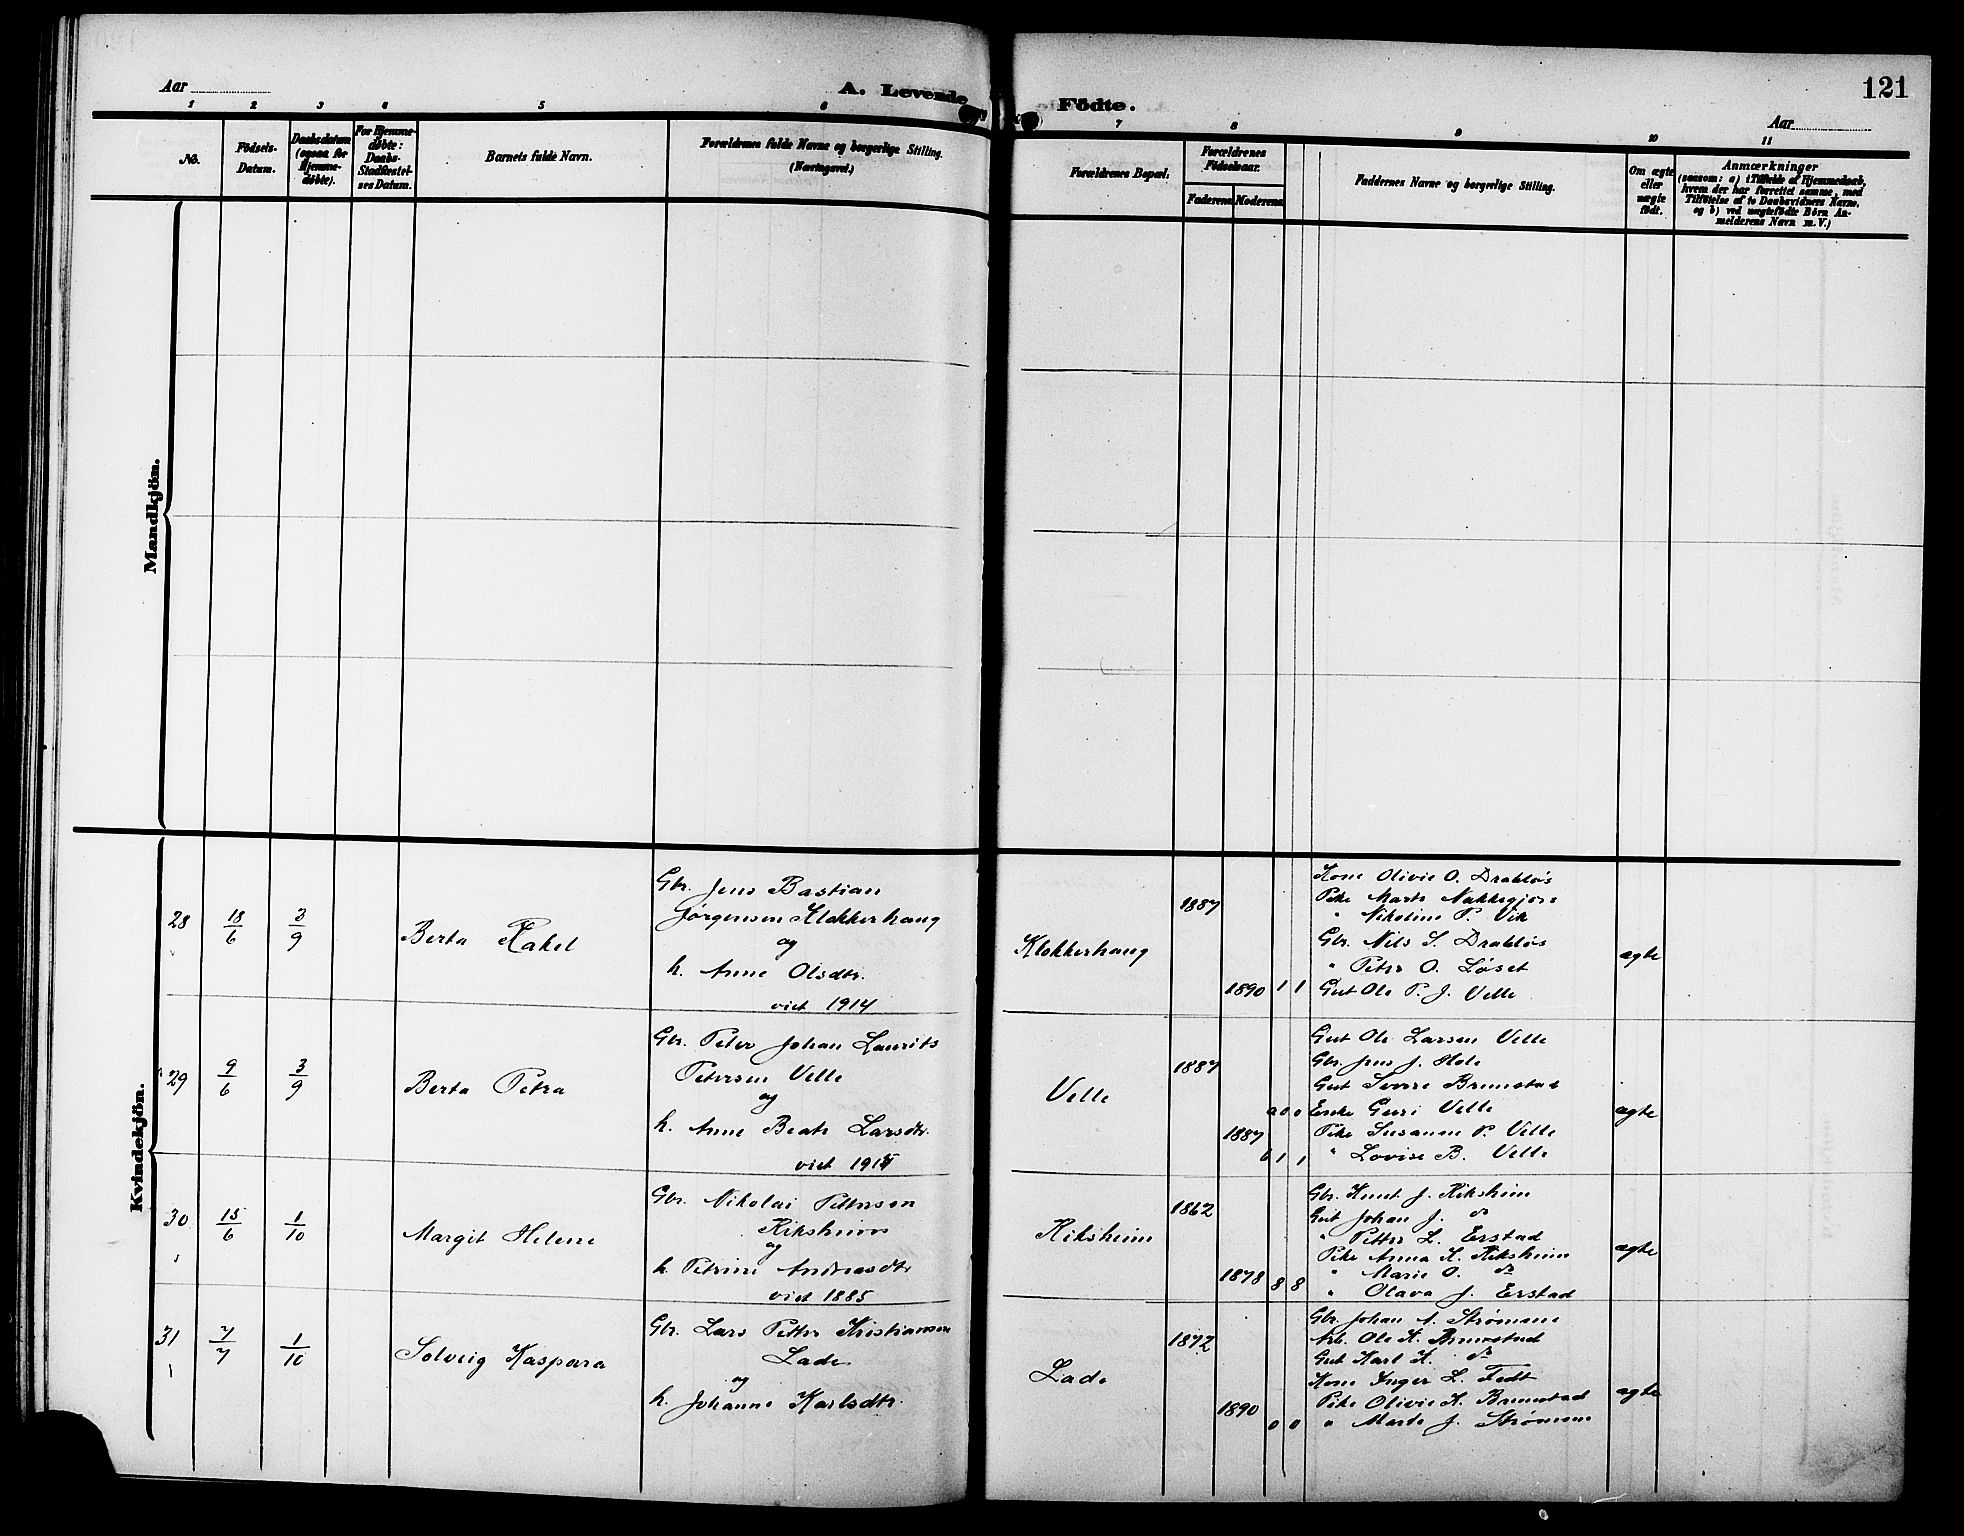 Aar
A. Levende Födte.
121
Aar
1 2 3 4 5 6 7 8 9 10 11
No.
Födsels-
Datum.
Daabsdatum
(ogsaa for
Hjemme-
döbte).
For Hjemme-
döbte:
Daabs-
Stadfæstel-
ses Datum.
Barnets fulde Navn.
Forældrenes fulde Navne og borgerlige Stilling.
(Næringsvei.)
Forældrenes Bopæl.
Forældrenes
Födselsaar.
Faderens Moderens
Faddernes Navne og borgerlige Stilling.
Om ægte
eller
uægte
født.
Anmærkninger
(saasom: a) i Tilfælde af Hjemmedaab,
hvem der har forrettet samme, med
Tilföielse af to Daabsvidners Navne,
og b) ved uægtefödte Börn An-
melderens Navn m.V.)
Mandkjön.
Kvindekjön.
28 18/6 3/9 Berta Rakel
Gbr. Jens Bastian
Jørgensen Klokkerhaug
og
h. Anne Olsdtr.
viet 1914
Klokkerhaug
1887
1890 1 1
Kone Olivie O. Drabløs
Pike Marte Nakkegjøre
" Nikoline P. Vik
Gbr. Nils S. Drabløs
" Peter O. Løset
Gut Ole P. J. Velle
ægte
29 9/6 3/9 Berta Petra
Gbr. Peter Johan Laurits
Petersen Velle
og
h. Anne Beate Larsdtr.
viet
Velle
1887
1887
Gut Ole Larsen Velle
Gbr. Jens J. Hole
Gut Sverre Brunstad
Enke Guri Velle
Pike Susanne P. Velle
" Lovise B. Velle
ægte
30 15/6 1/10 Margit Helene
Gbr. Nikolai Pettersen
Riksheim
og
h. Petrine Andreasdtr
viet 1885
Riksheim
1862
1878 8 8
Gbr. Knut J. Riksheim
Gut Johan J. do
" Petter L. Erstad
Pike Anna K. Riksheim
" Marie O. do
" Olava J. Erstad
ægte
31 7/7 1/10 Solveig Kaspara
Gbr. Lars Petter Kristiansen
Lade
og
h. Johanne Karlsdtr.
Lade
1872
1890 0 0
Gbr. Johan A. Strømme
Arb. Ole K. Brunstad
Gut Karl K. do
Kone Inger L. Fedt
Pike Olivie K. Brunstad
" Marte J. Strømme
ægte